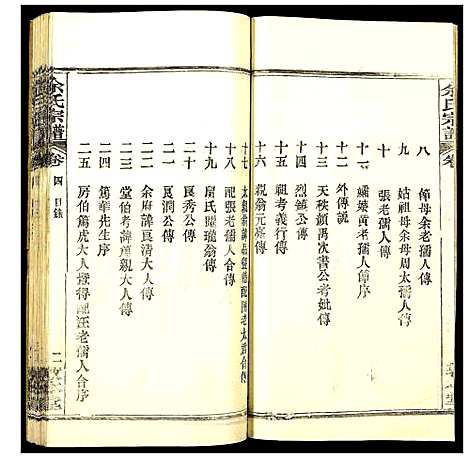 余氏宗譜
卷
八 師母余老孺人傳
九 姑祖母余母周太孺人傳
十 張老孺人傳
十一 孀媳黃老孺人傳序
十二 外傳說
十三 天秩鎮禹次書公考妣傳
十四 烈鎮公傳
十五 祖考義行傳
十六 親翁元亮傳
十七
十八 配張老孺人合傳
十九 周氏 瓏翁傳
二十 良秀公傳
二一 良澗公傳
二二 余府諱良清大人傳
二三 堂伯考諱 親大人傳
二四 筠華先生序
二五 房伯篤虎大人 得配汪老孺人合序
余氏宗譜
卷四 目錄
二
堂